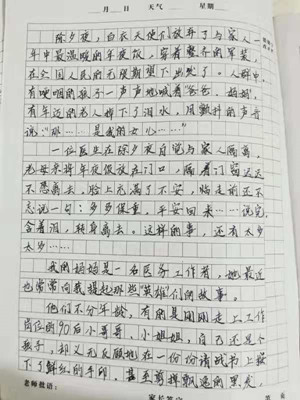 月 日 天气 星期
除夕夜,白衣天使们放弃了与家人一
年中最温暖的年夜饭,穿着整齐的军装,
在全国人民的无限期望下出发了。人群中,
有哽咽的孩子一声声地喊着“爸爸、妈妈,
有年迈的老人掉下了泪水,用颤抖的声音
说“那……是我的女儿……”
一位医生在除夕夜自觉与家人隔离,
老母亲将年夜饭放在门口,隔着门窗迟迟
不愿离去,脸上充满了不安,临走前还不
忘说一句:多多保重,平安回来……说完,
含着泪,转身离去。这样的事,还有太多
太多……
我的妈妈是一名医务工作者,她最近
也常常向我提起那些“英雄”们的故事。
他们不分年龄,有的是刚刚走上工作
岗位的90后小哥哥、小姐姐,自己还是个
孩子,却义无反顾地在一份份请战书上按
下了鲜红的手印,甚至剪掉飘逸的黑发,
老师批语:
家长签字